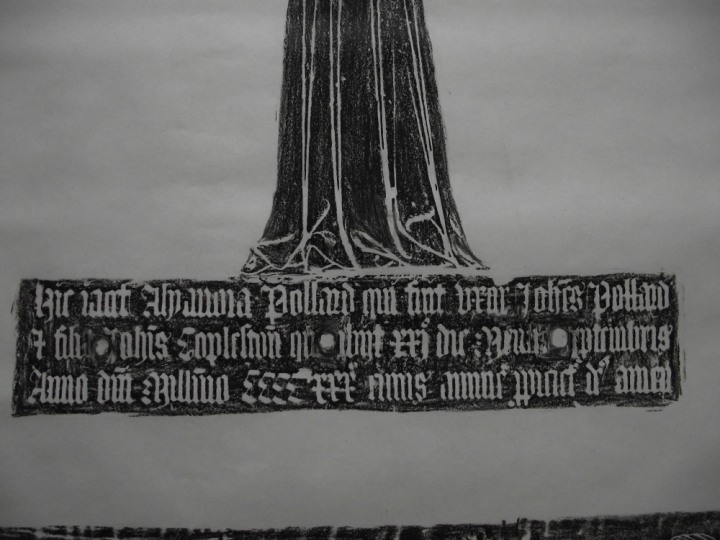 Hic iacet Thamina Pollard que fuit uxor Joh̄is Pollard
& filia Joh̄is Copleston que obiit xxj die Mensis Septembris
Anno dn̄i Millimo CCCCxxx cuius anime ppiciet' d' amen